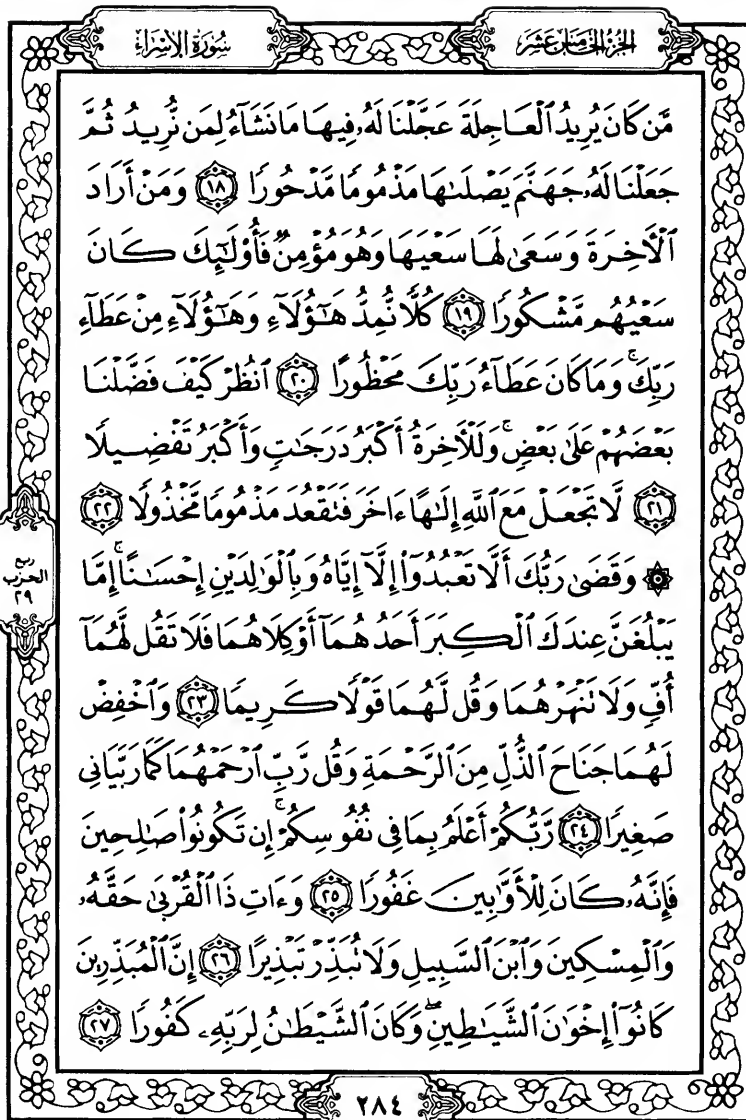 سُورَةُ الإِسۡرَاءِ
الجُزۡءُ الخَامِسَ عَشَرَ
مَّن كَانَ يُرِيدُ ٱلۡعَاجِلَةَ عَجَّلۡنَا لَهُۥ فِيهَا مَا نَشَآءُ لِمَن نُّرِيدُ ثُمَّ
جَعَلۡنَا لَهُۥ جَهَنَّمَ يَصۡلَىٰهَا مَذۡمُومٗا مَّدۡحُورٗا ١٨ وَمَنۡ أَرَادَ
ٱلۡأٓخِرَةَ وَسَعَىٰ لَهَا سَعۡيَهَا وَهُوَ مُؤۡمِنٞ فَأُوْلَٰٓئِكَ كَانَ
سَعۡيُهُم مَّشۡكُورٗا ١٩ كُلّٗا نُّمِدُّ هَٰٓؤُلَآءِ وَهَٰٓؤُلَآءِ مِنۡ عَطَآءِ
رَبِّكَۚ وَمَا كَانَ عَطَآءُ رَبِّكَ مَحۡظُورًا ٢٠ ٱنظُرۡ كَيۡفَ فَضَّلۡنَا
بَعۡضَهُمۡ عَلَىٰ بَعۡضٖۚ وَلَلۡأٓخِرَةُ أَكۡبَرُ دَرَجَٰتٖ وَأَكۡبَرُ تَفۡضِيلٗا
٢١ لَّا تَجۡعَلۡ مَعَ ٱللَّهِ إِلَٰهًا ءَاخَرَ فَتَقۡعُدَ مَذۡمُومٗا مَّخۡذُولٗا ٢٢
۞ وَقَضَىٰ رَبُّكَ أَلَّا تَعۡبُدُوٓاْ إِلَّآ إِيَّاهُ وَبِٱلۡوَٰلِدَيۡنِ إِحۡسَٰنًاۚ إِمَّا
يَبۡلُغَنَّ عِندَكَ ٱلۡكِبَرَ أَحَدُهُمَآ أَوۡ كِلَاهُمَا فَلَا تَقُل لَّهُمَآ
أُفّٖ وَلَا تَنۡهَرۡهُمَا وَقُل لَّهُمَا قَوۡلٗا كَرِيمٗا ٢٣ وَٱخۡفِضۡ
لَهُمَا جَنَاحَ ٱلذُّلِّ مِنَ ٱلرَّحۡمَةِ وَقُل رَّبِّ ٱرۡحَمۡهُمَا كَمَا رَبَّيَانِي
صَغِيرٗا ٢٤ رَّبُّكُمۡ أَعۡلَمُ بِمَا فِي نُفُوسِكُمۡۚ إِن تَكُونُواْ صَٰلِحِينَ
فَإِنَّهُۥ كَانَ لِلۡأَوَّٰبِينَ غَفُورٗا ٢٥ وَءَاتِ ذَا ٱلۡقُرۡبَىٰ حَقَّهُۥ
وَٱلۡمِسۡكِينَ وَٱبۡنَ ٱلسَّبِيلِ وَلَا تُبَذِّرۡ تَبۡذِيرًا ٢٦ إِنَّ ٱلۡمُبَذِّرِينَ
كَانُوٓاْ إِخۡوَٰنَ ٱلشَّيَٰطِينِۖ وَكَانَ ٱلشَّيۡطَٰنُ لِرَبِّهِۦ كَفُورٗا ٢٧
ربع
الحزب
٢٩
٢٨٤